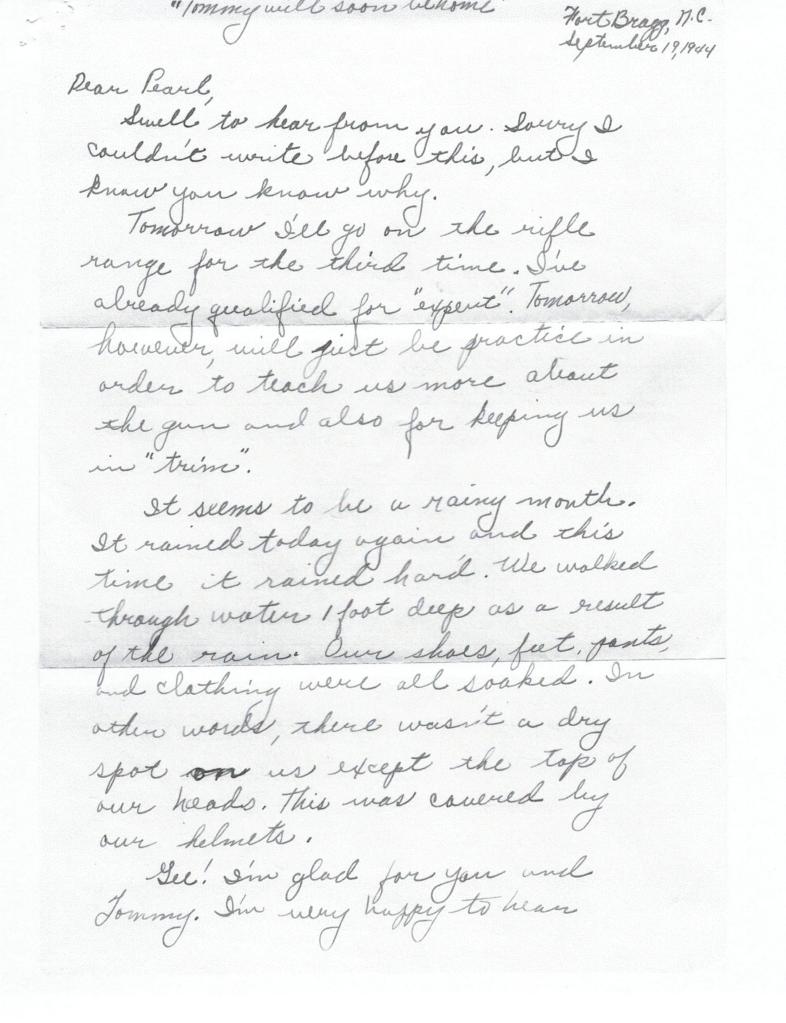 "Tommy will soon be home"
Fort Bragg, N.C.
September 19, 1944
Dear Pearl,
Swell to hear from you. Sorry I
couldn't write before this, but I
know you know why.
Tomorrow I'll go on the rifle
range for the third time. I've
already qualified for "expert". Tomorrow,
however, will just be practice in
order to teach us more about
the gun and also for keeping us
in "trim".
It seems to be a rainy month.
It rained today again and this
time it rained hard. We walked
through water 1 foot deep as a result
of the rain. Our shoes, feet, pants,
and clothing were all soaked. In
other words, there wasn't a dry
spot on us except the top of
our heads. This was covered by
our helmets.
Gee! I'm glad for you and
Tommy. I'm very happy to hear